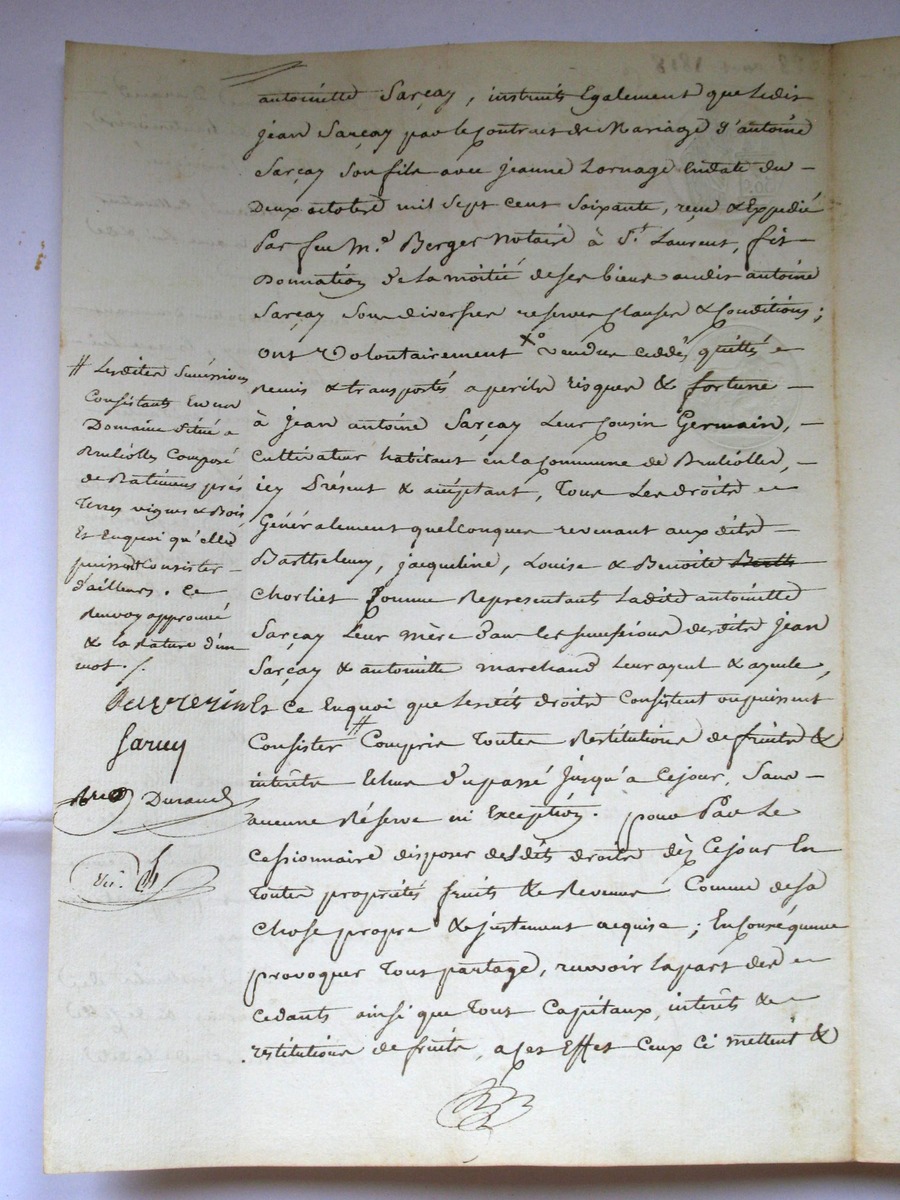 antoinette Sarçay, instruits Egalement que Ledit
jean Sarçay par le Contrat de Mariage d'antoine
Sarçay Son fils avec jeanne Lornage En date du
Deux octobre mil Sept Cent Soixante, reçu & Expédié
Par feu M.e Berger Notaire à S.t Laurent, fit
Donnation de la moitié de ses biens audit antoine
Sarçay Sous diverses reserves Clauses & Conditions;
ont Volontairement vendus ceddés quittés
remis & transportés a perils risques & fortune
à jean antoine Sarçay Leur Cousin Germain,
Cultivateur habitant en la Commune de Brulliolles,
icy Présent & acceptant, Tous Les droits
Généralement quelConques revenant aux dits
Barthelemy, jacqueline, Louise & Benoite
Chorliet Comme Représentants Ladite antoinette
Sarçay Leur mère dans les successions desdits jean
Sarçay & antoinette marchand Leur ayeul & ayeule,
Et Ce Enquoi que Lesdits droits Consistent ou puissent
Consister # Compris Toutes Restitutions de fruits &
intérêts Echus du passé jusqu'à Cejour, Sans
aucune Réserve ni Exception. pour Par Le
Cessionnaire disposer desdits droits dèz Cejour En
Toute propriétés fruits & Revenus Comme de sa
Chose propre & justement acquise; En Conséquence
provoquer Tous partage, recevoir la part des
Cedants ainsi que Tous Capitaux, intérêts &
restitutions de fruits, a Ces Effet Ceux Ci mettent &
# Lesdites Successions
Consistants En un
Domaine situé a
Brulliolles Composé
de Batiments prés
Terres vignes & Bois
Et Enquoi qu'elles
puissent Consister
d'ailleurs. Ce
Renvoy approuvé
& la rature d'un
mot./.
Sarcey
Durand